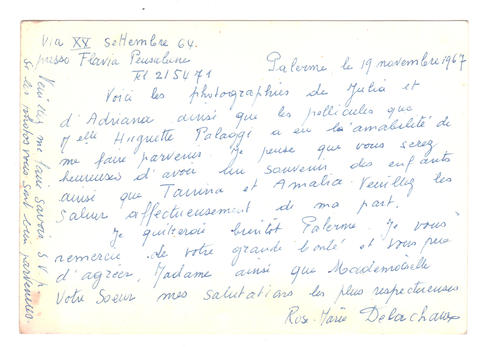 Via XX Settembre 64.
presso Flavia Pensabene
Tel 215471
Palerme le 19 novembre 1967
Voici les photographies de Julia et
d'Adriana ainsi que les pellicules que
Melle Huguette Palaggi a eu la amabilité de
me faire parvenir. Je pense que vous serez
heureuses d'avoir un souvenir des enfants
ainsi que Tanina et Amalia. Veuillez les
saluer affectueusement de ma part.
Je quitterai bientôt Palerme. Je vous
remercie de votre grande bonté et vous prie
d'agréer, Madame ainsi que Mademoiselle
Votre Soeur mes salutations les plus respectueuses
Rose-Marie Delachaux
Veuillez me faire savoir S.V.P.
Si les photos vous sont bien parvenues.